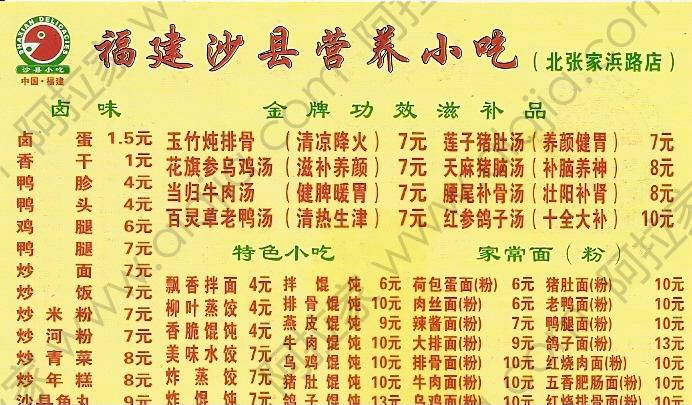 SHAXIAN DELICACIES
沙县小吃
中国·福建
福建沙县营养小吃
(北张家浜路店)
卤味
卤蛋 1.5元
香干 1元
鸭胗 4元
鸭头 4元
鸡腿 6元
鸭腿 7元
炒面 7元
炒饭 7元
炒米粉 7元
炒河粉 7元
炒青菜 8元
炒年糕 8元
沙县鱼丸 9元
金牌功效滋补品
玉竹炖排骨 (清凉降火) 7元
花旗参乌鸡汤 (滋补养颜) 7元
当归牛肉汤 (健脾暖胃) 7元
百灵草老鸭汤 (清热生津) 7元
莲子猪肚汤 (养颜健胃) 7元
天麻猪脑汤 (补脑养神) 8元
腰尾补骨汤 (壮阳补肾) 8元
红参鸽子汤 (十全大补) 10元
特色小吃
飘香拌面 4元
柳叶蒸饺 4元
香脆馄饨 4元
美味水饺 7元
炸蒸饺 7元
炸馄饨 7元
拌馄饨 6元
排骨馄饨 10元
燕皮馄饨 9元
牛肉馄饨 10元
乌鸡馄饨 10元
猪肚馄饨 10元
鸽子馄饨 13元
家常面(粉)
荷包蛋面(粉) 6元
肉丝面(粉) 6元
辣酱面(粉) 7元
大排面(粉) 9元
排骨面(粉) 10元
牛肉面(粉) 10元
乌鸡面(粉) 10元
猪肚面(粉) 10元
老鸭面(粉) 10元
鸭腿面(粉) 10元
鸽子面(粉) 13元
红烧肉面(粉) 10元
五香肥肠面(粉) 10元
红烧排骨面(粉) 10元